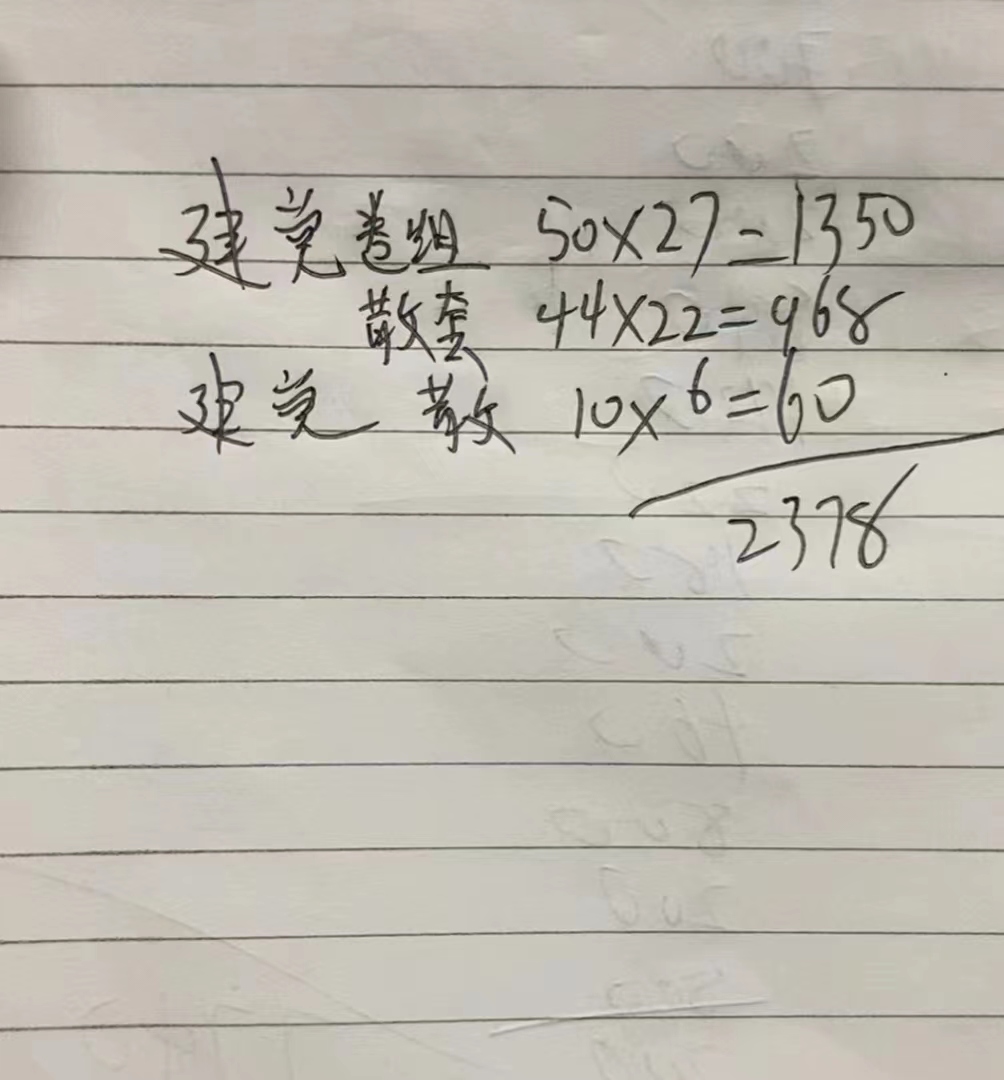 建党卷组 50×27=1350
散套 44×22=968
建党 散 10×6=60
2378